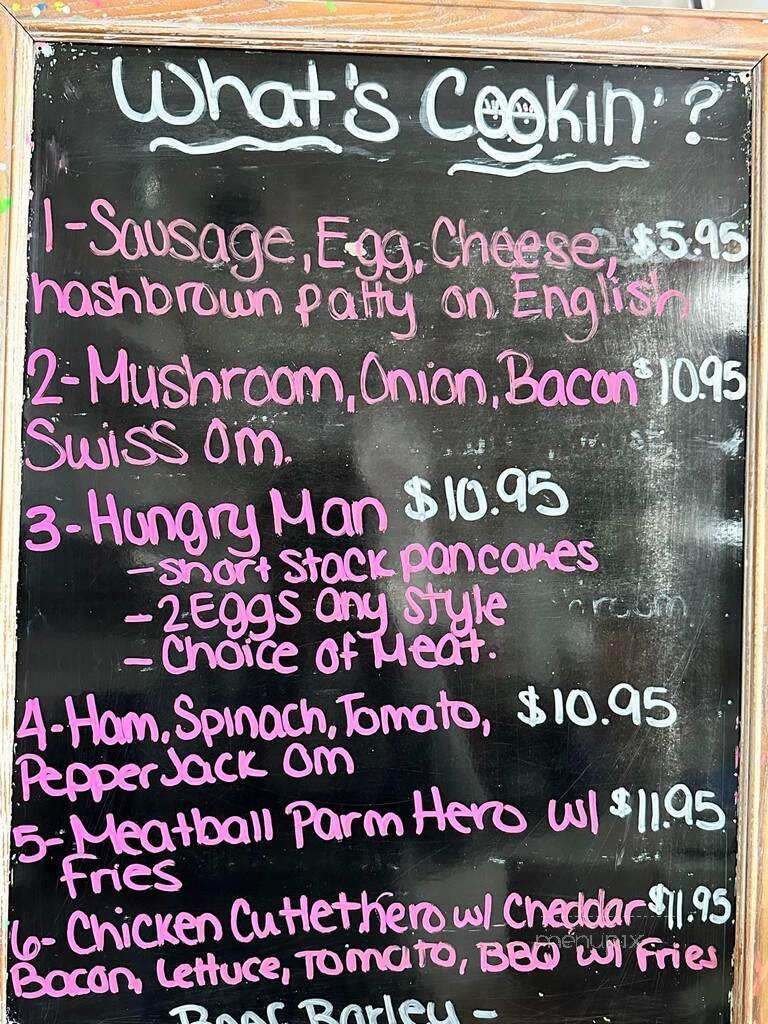 What's Cookin'?
1-Sausage, Egg, Cheese, $5.95
hashbrown patty on English
2-Mushroom, Onion, Bacon $10.95
Swiss Om.
3-Hungry Man $10.95
-short stack pancakes
-2 Eggs any style
-Choice of Meat.
4-Ham, Spinach, Tomato, $10.95
Pepper Jack Om
5-Meatball Parm Hero w/ $11.95
Fries
6-Chicken Cutlet hero w/ Cheddar $11.95
Bacon, Lettuce, Tomato, BBQ w/ Fries
menupix
Barley -